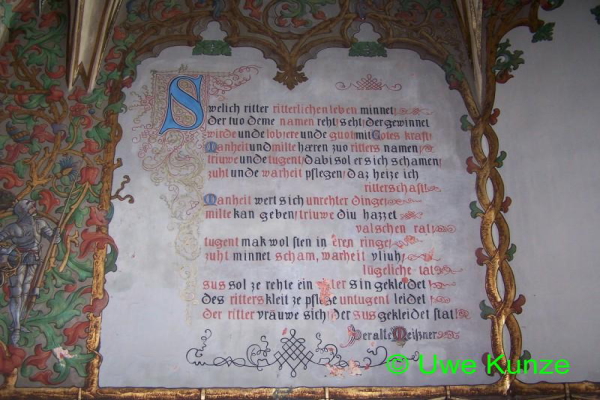 Swelich ritter ritterlichen leben minnet/
der tuo deme namen reht/ seht/ der gewinnet
wirde unde lob/ ere unde guot mit Gotes kraft/
Manheit unde milte hœren zuo ritters namen/
triuwe unde tugent/ da bi sol er sich schamen/
zuht unde warheit pflegen/ daz heize ich
ritterschaft/
Manheit wert sich unrehter dinge/
milte kan geben/ triuwe diu hazzet
valschen rat/
tugent mak wol sten in eren ringe/
zuht minnet scham, warheit vliuh/
lügeliche tat/
sus sol ze rehte ein ritter sin gekleidet/
des ritters kleit ze pflege untugent leidet/
der ritter vrauwe sich/ der sus gekleidet stat/
Der alte Meißner
© Uwe Kunze